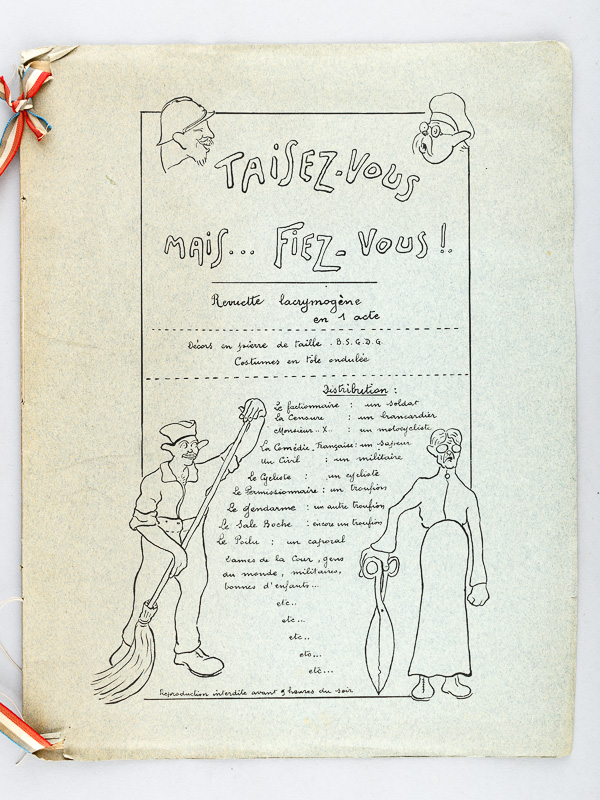 TAISEZ-VOUS
MAIS... FIEZ-VOUS!
Revuette lacrymogène
en 1 acte
Décors en pierre de taille. B.S.G.D.G.
Costumes en tôle ondulée
Distribution :
Le factionnaire : un soldat
La Censure : un brancardier
Monsieur..X.. : un motocycliste
La Comédie-Française : un sapeur
Un Civil : un militaire
Le Cycliste : un cycliste
Le Permissionnaire : un troufion
Le Gendarme : un autre troufion
Le Sale Boche : encore un troufion
Le Poilu : un caporal
Dames de la Cour, gens
du monde, militaires,
bonnes d'enfants...
etc..
etc...
etc..
etc...
etc...
Reproduction interdite avant 9 heures du soir